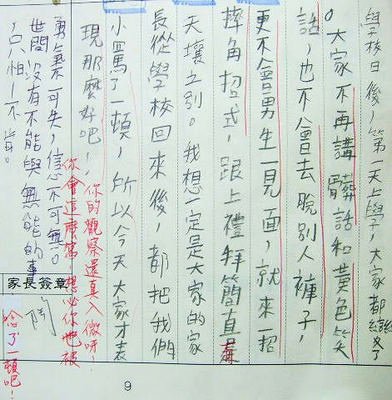 學校日後,第一天上學,大家都變了
。大家不再講髒話和黃色笑
話,也不會去脫別人褲子,
更不會男生一見面,就來一招
摔角招式,跟上禮拜簡直
天壤之別。我想一定是大家的家
長從學校回來後,都把我們
小罵了一頓,所以今天大家才表
現那麼好吧!
你的觀察還真入微呀!
你會這麼寫,想必你也被
唸了一頓吧!
勇氣不可失,信心不可無。
世間沒有不能與無能的事
,只怕—不肯。
家長簽章
陶
9